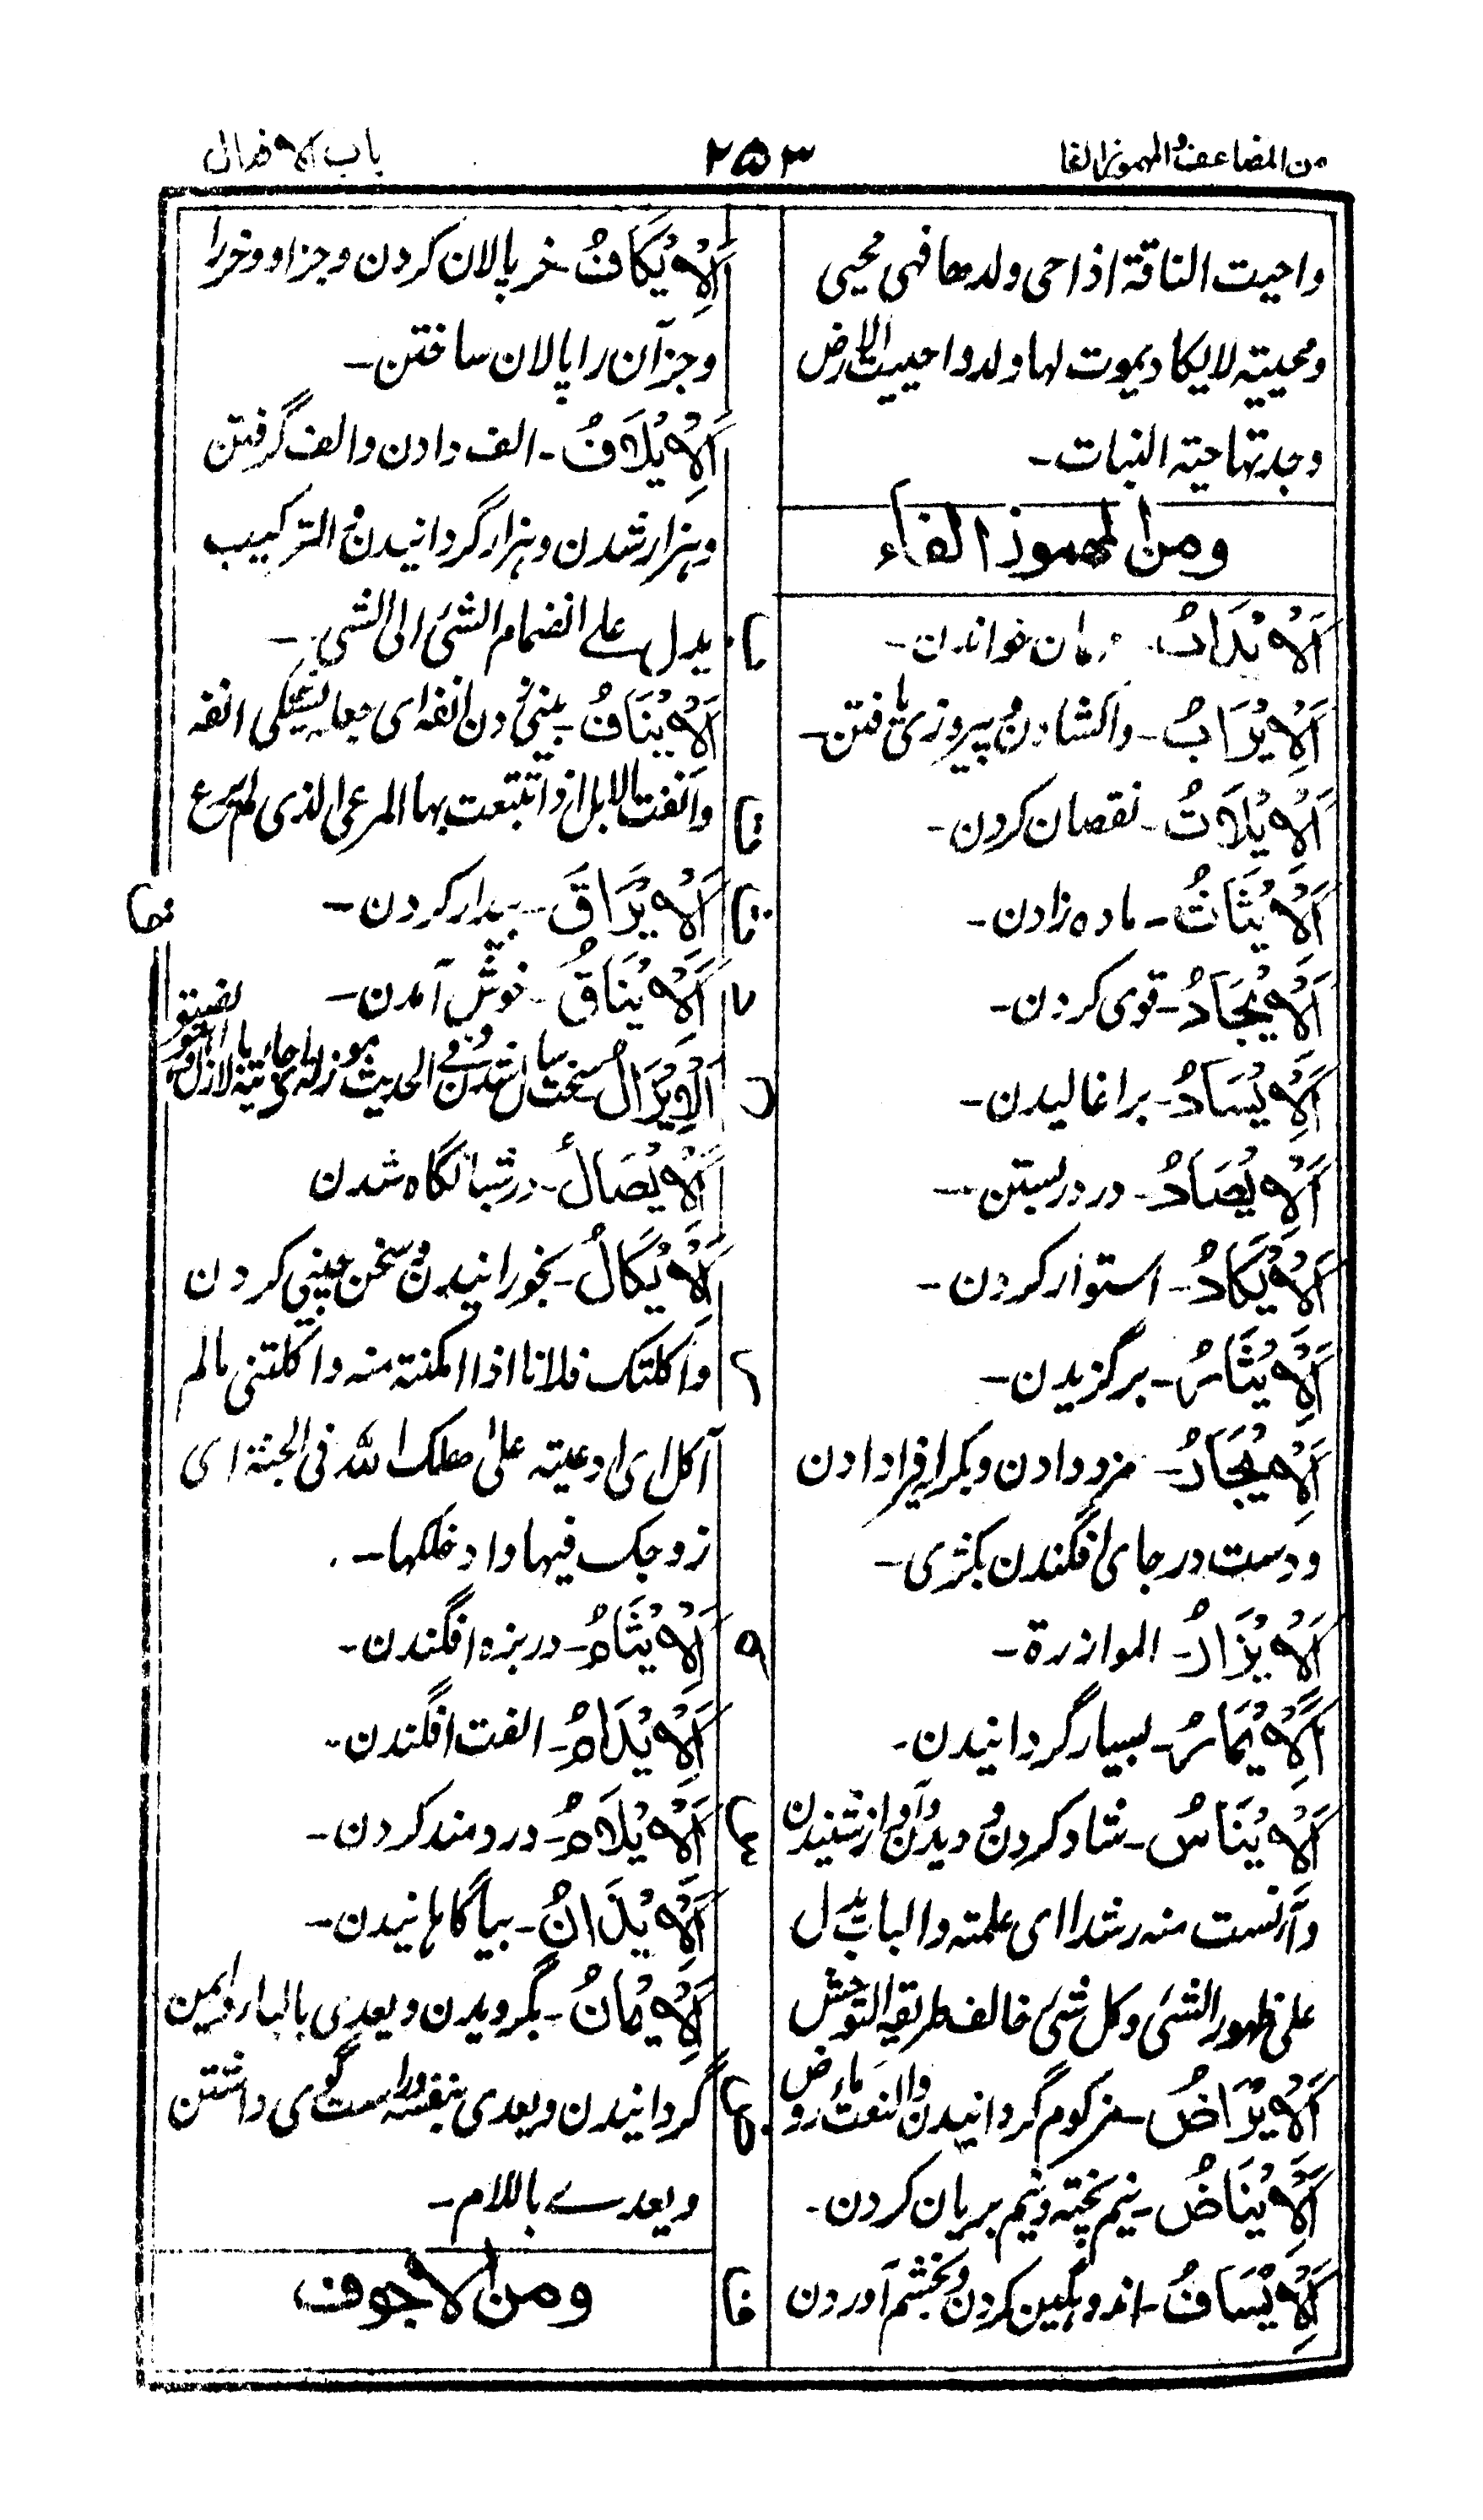 من المضاعف والمهموز الفا
۲۵۳
باب الافعال
واحیت الناقة اذا حی ولدها فهی محیی
ومحییة لا یکاد یموت لها ولد واحییت الارض
وجدتها حیة النبات۔
ومن المهموز الفاء
اَلْاِیْدَابُ۔ خواندن۔
اَلْاِیْرَابُ۔ واکشادن و پیروزی یافتن۔
اَلْاِیْلَاتُ۔ نقصان کردن۔
اَلْاِیْنَاثُ۔ ماده زادن۔
اَلْاِیْجَادُ۔ قوی کردن۔
اَلْاِیْسَادُ۔ براغالیدن۔
اَلْاِیْصَادُ۔ در در بستن۔
اَلْاِیْکَادُ۔ استوار کردن۔
اَلْاِیْثَارُ۔ برگزیدن۔
اَلْاِیْجَارُ۔ مزد دادن و بکرا فرا دادن
ودست در جای افگندن بکژی۔
اَلْاِیْزَارُ۔ الموازرة۔
اَلْاِیْمَارُ۔ بسیار گردانیدن۔
اَلْاِیْنَاسُ۔ شاد کردن و دیدن و آواز شنیدن
وآنست منه رشدا ای علمته والباب یدل
علی ظهور الشئ وکل شئ خالف طریقة التوحش
اَلْاِیْرَاضُ۔ مزکوم گردانیدن والنعت ماروض
اَلْاِیْنَاضُ۔ نیم پخته و نیم بریان کردن۔
اَلْاِیْسَافُ۔ اندوهگین کردن و بخشم آوردن
اَلْاِیْکَافُ۔ خر پالان کردن وجزاو وخر را
وجز آن را پالان ساختن۔
اَلْاِیْلَافُ۔ الف دادن والف گرفتن
وهزار شدن وهزار گردانیدن والترکیب
یدل علے انضمام الشئ الی الشی۔
اَلْاِیْنَافُ۔ بینی دن انفه ای جعله یشتکی انفه
وآنفت الابل اذا تتبعت بها المرعی الذی لم یرع
اَلْاِیْرَاقَ۔ بیدار کردن۔
اَلْاِیْنَاقُ۔ خوش آمدن۔
اَلْاِیْزَالُ سخت سال شدن وفی الحدیث
اَلْاِیْصَالُ۔ در شبانگاه شدن
اَلْاِیْکَالُ۔ بخورانیدن و سخن چینی کردن
وآکلتک فلانا اذا امکنته منه وآکلتنی مالم
آکل ای ادعیته علی اهلک الله فی الجنة ای
زوجک فیها وادخلکها۔
اَلْاِیْثَامُ۔ در بزه افگندن۔
اَلْاِیْدَامُ۔ الفت افگندن۔
اَلْاِیْلَامُ۔ دردمند کردن۔
اَلْاِیْذَانُ۔ بیاگاهانیدن۔
اَلْاِیْمَانُ۔ بگرویدن ویعدی بالباء وایمن
گردانیدن ویعدی بنفسه وراست گوی داشتن
ویعدے باللام۔
ومن الاجوف